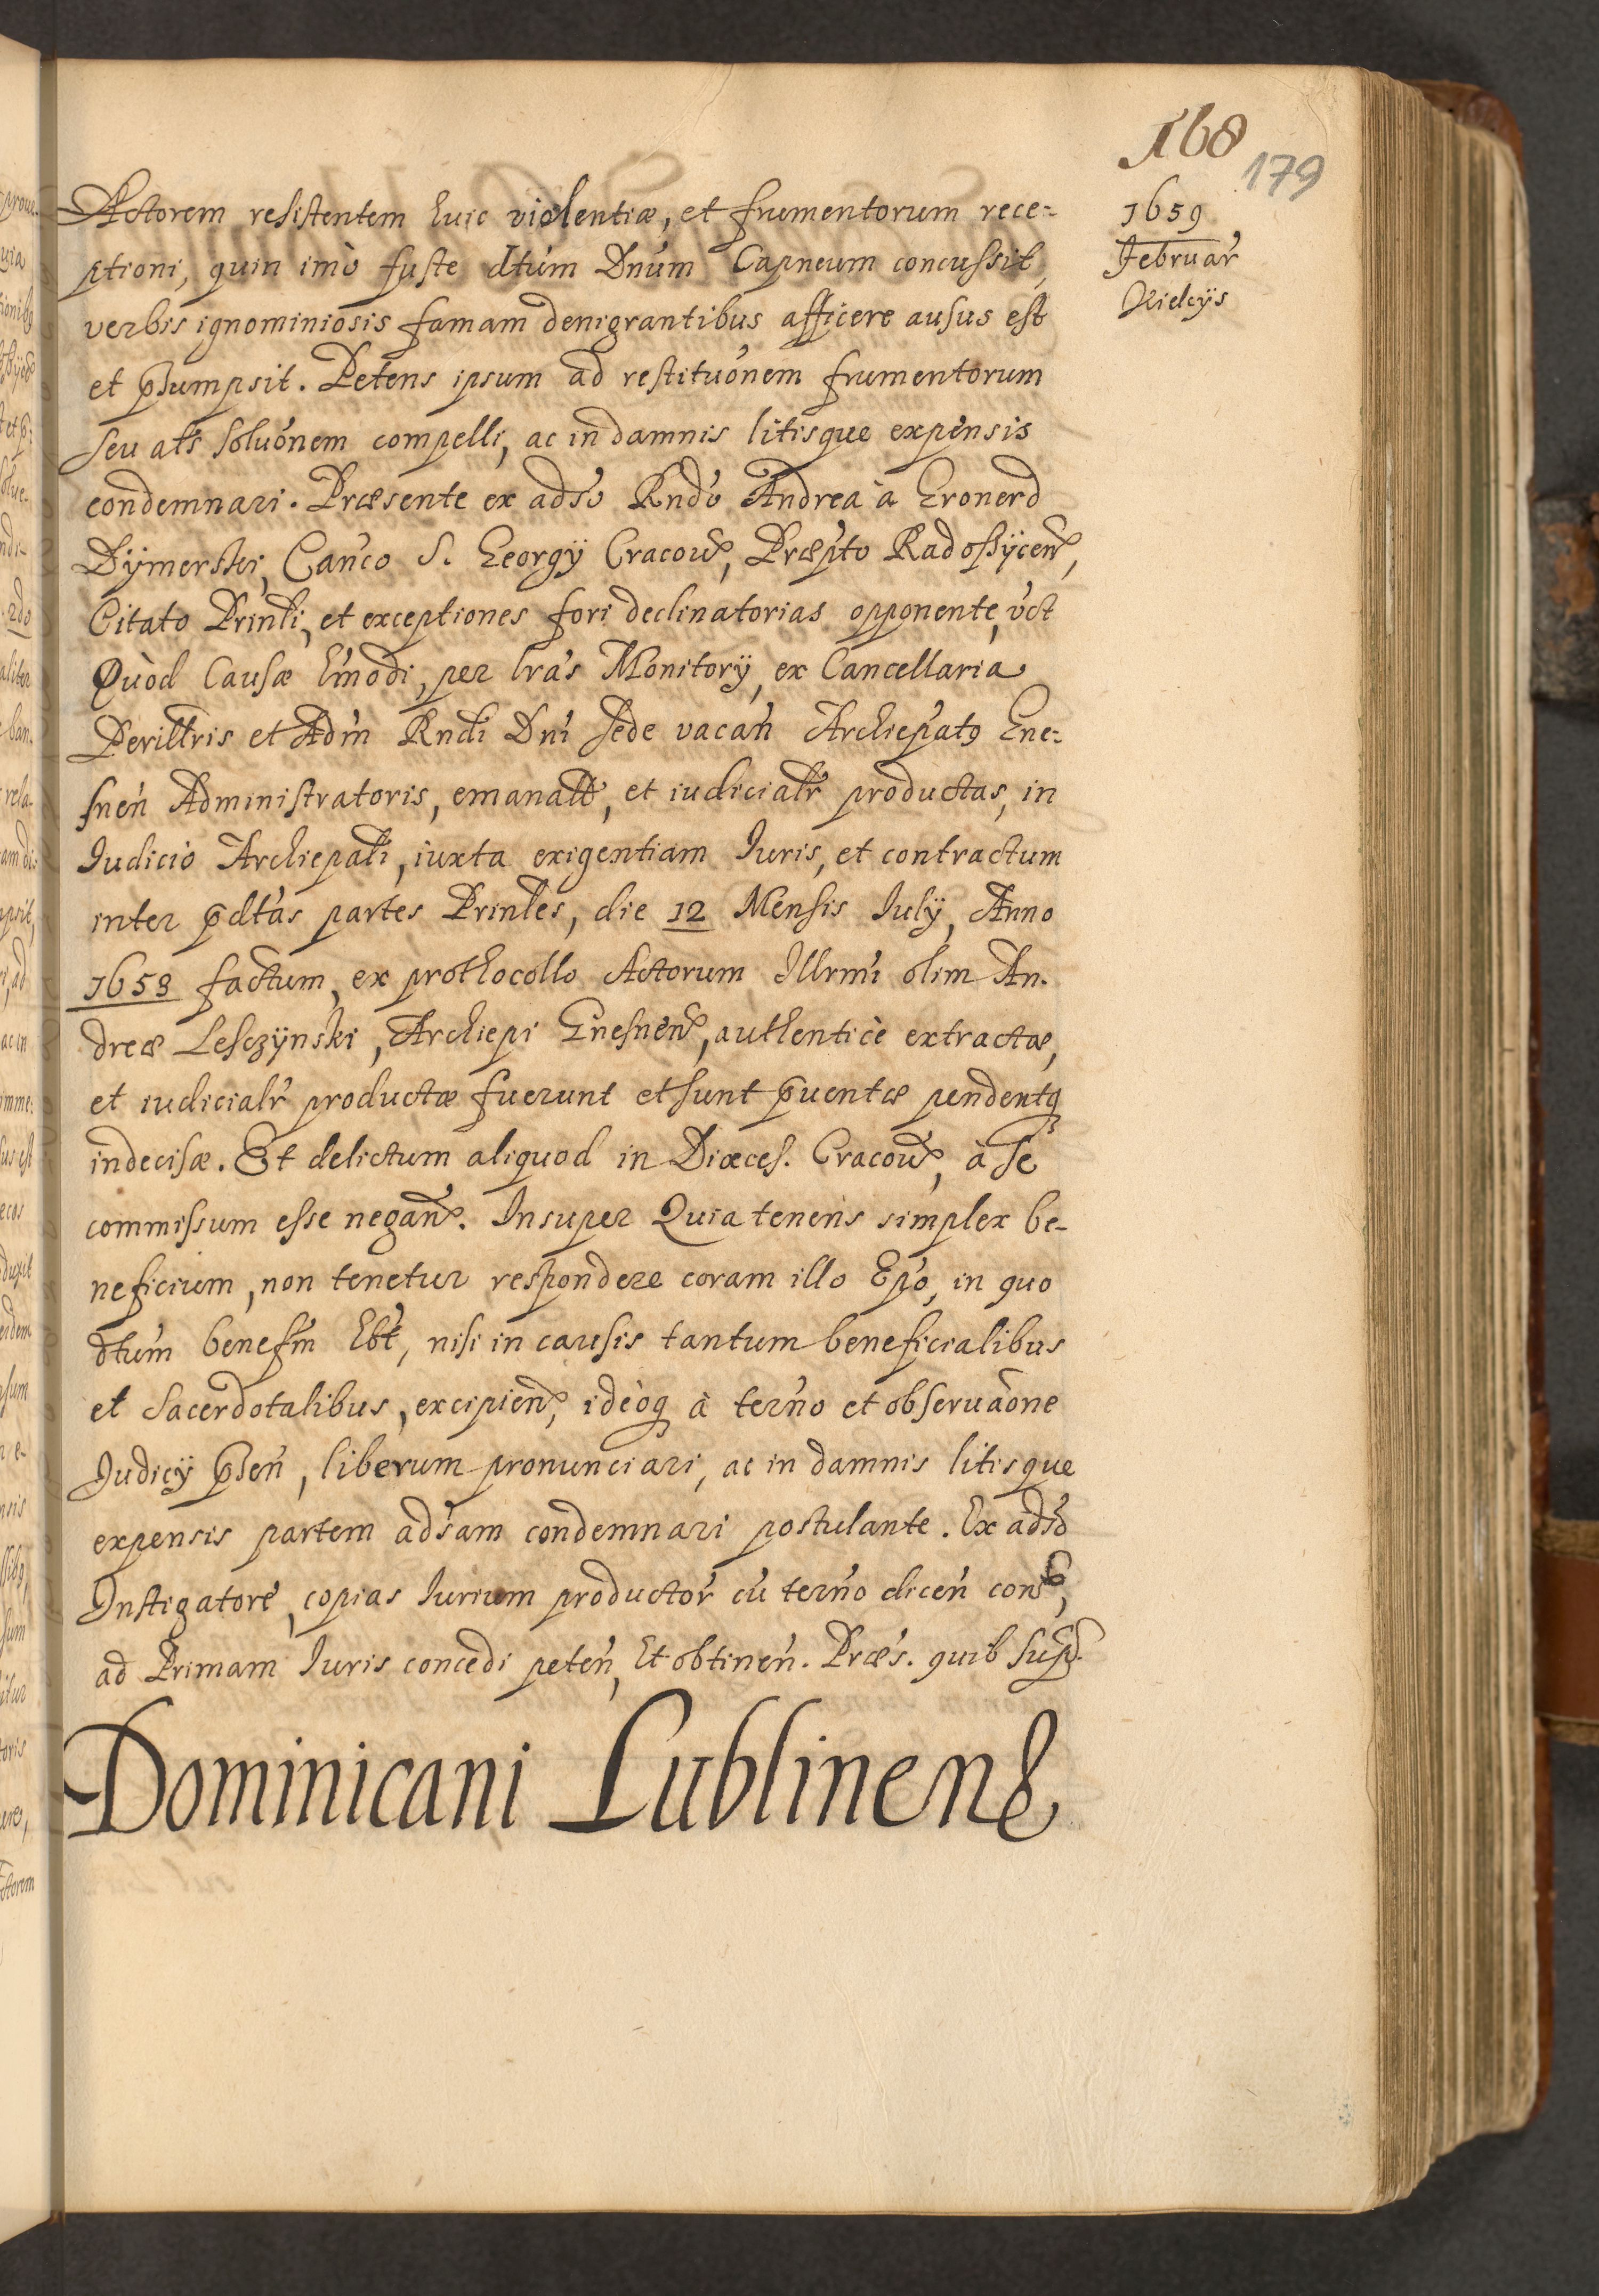 168
179
1659
Februar̃
Kielcÿs
Actorem resistentem huic violentiæ, et frumentorum rece-
ptioni, quin imò fuste dtúm Dnúm Capneum concussit,
verbis ignominiosis famam denigrantibus afficere ausus est
et p̃sumpsit. Petens ipsum ad restituónem frumentorum
seu als soluónem compelli, ac in damnis litisque expensis
condemnari. Præsente ex adsó Rndó Andrea à Gronerd
Dÿmerski, Cańco S. Georgÿ Cracouꝭ, Præpto Radossÿcenꝭ,
Citato Prinli, et exceptiones fori declinatorias opponente, vct
Quòd Causæ hmódi, per lrás Monitorÿ, ex Cancellaria
Perillris et Adm̃ Rndi Dnĩ sede vacań Archiepatꝰ Gne-
snén Administratoris, emanatt, et iudicialr̃ productas, in
Iudicio Archiepali, iuxta exigentiam Iuris, et contractum
inter p̃dtás partes Prinles, die 12 Mensis Iulÿ, Anno
1658 factum, ex prothocollo Actorum Illrmi olim An-
dreæ Lesczÿnski, Archiepi Gnesnenꝭ, authenticè extractæ,
et iudicialr̃ productæ fuerunt et sunt p̃uentæ pendentq
indecisæ. Et delictum aliquod in Diœces. Cracouꝭ, à se
commissum esse neganꝭ. Insuper Quia tenens simplex be-
neficium, non tenetur respondere coram illo Epó, in quo
dtúm benefm̃ hbt, nisi in causis tantum beneficialibus
et Sacerdotalibus, excipienꝭ, ideòq à terńo et obseruaóne
Iudicÿ p̃sen̄, liberum pronunciari, ac in damnis litisque
expensis partem adsám condemnari postulante. Ex adsó
Instigatore, copias Iurium productor̃ cũ terńo diceń consꝭ,
ad Primam Iuris concedi peteń, Et obtineń. Præs. quib sup̃.
Dominicani Lublinenꝭ